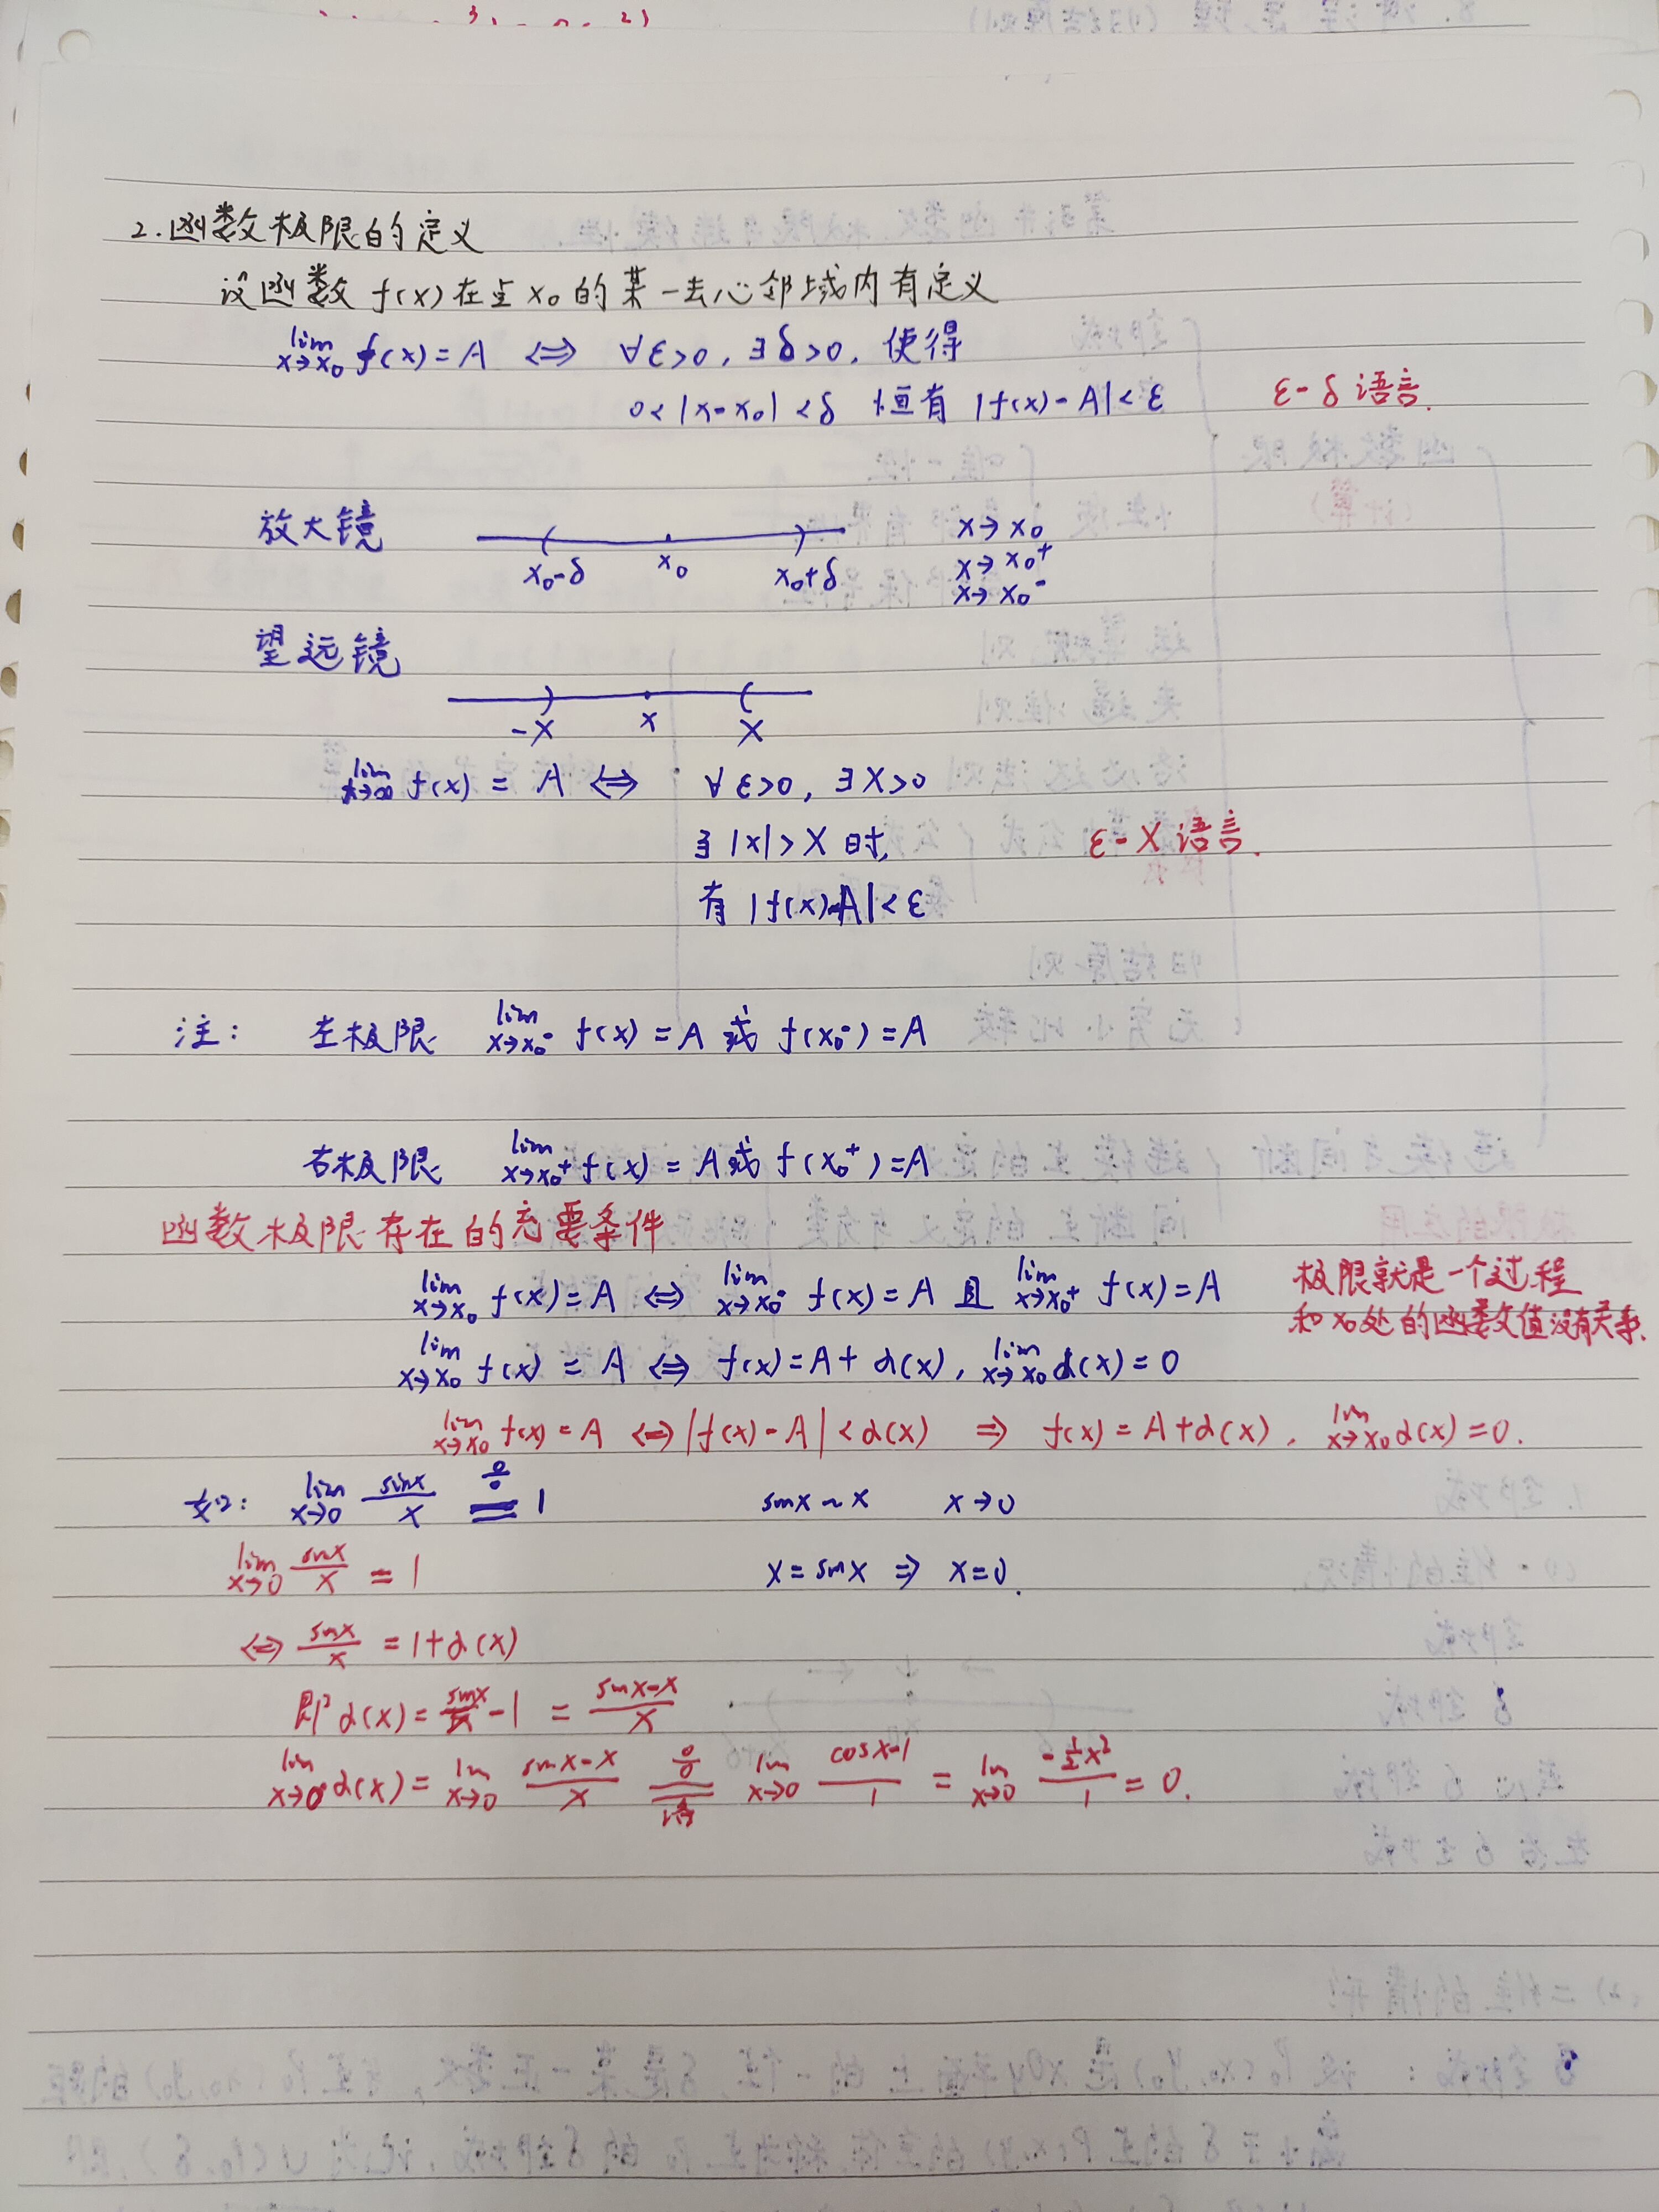 2.函数极限的定义
设函数 f(x) 在点 x₀ 的某一去心邻域内有定义
lim x→x₀ f(x) = A ⇔ ∀ε>0, ∃δ>0, 使得
0<|x-x₀|<δ 恒有 |f(x)-A|<ε ε-δ 语言.
放大镜 x₀-δ x₀ x₀+δ x→x₀
x→x₀⁺
x→x₀⁻
望远镜
-X x X
lim x→∞ f(x) = A ⇔ ∀ε>0, ∃X>0
∃ |x|>X 时, ε-X 语言.
有 |f(x)-A|<ε
注: 左极限 lim x→x₀⁻ f(x) = A 或 f(x₀⁻) = A
右极限 lim x→x₀⁺ f(x) = A 或 f(x₀⁺) = A
函数极限存在的充要条件
lim x→x₀ f(x) = A ⇔ lim x→x₀⁻ f(x) = A 且 lim x→x₀⁺ f(x) = A 极限就是一个过程
和 x₀ 处的函数值没有关系.
lim x→x₀ f(x) = A ⇔ f(x) = A + α(x), lim x→x₀ α(x) = 0
lim x→x₀ f(x) = A ⇔ |f(x)-A| < α(x) ⇒ f(x) = A + α(x), lim x→x₀ α(x) = 0.
如: lim x→0 sinx/x 0/0 = 1 sinx ~ x x→0
lim x→0 sinx/x = 1 x = sinx ⇒ x=0.
⇔ sinx/x = 1+α(x)
即 α(x) = sinx/x - 1 = (sinx-x)/x
lim x→0 α(x) = lim x→0 (sinx-x)/x 0/0 = lim x→0 (cosx-1)/1 = lim x→0 (-½x²)/1 = 0.